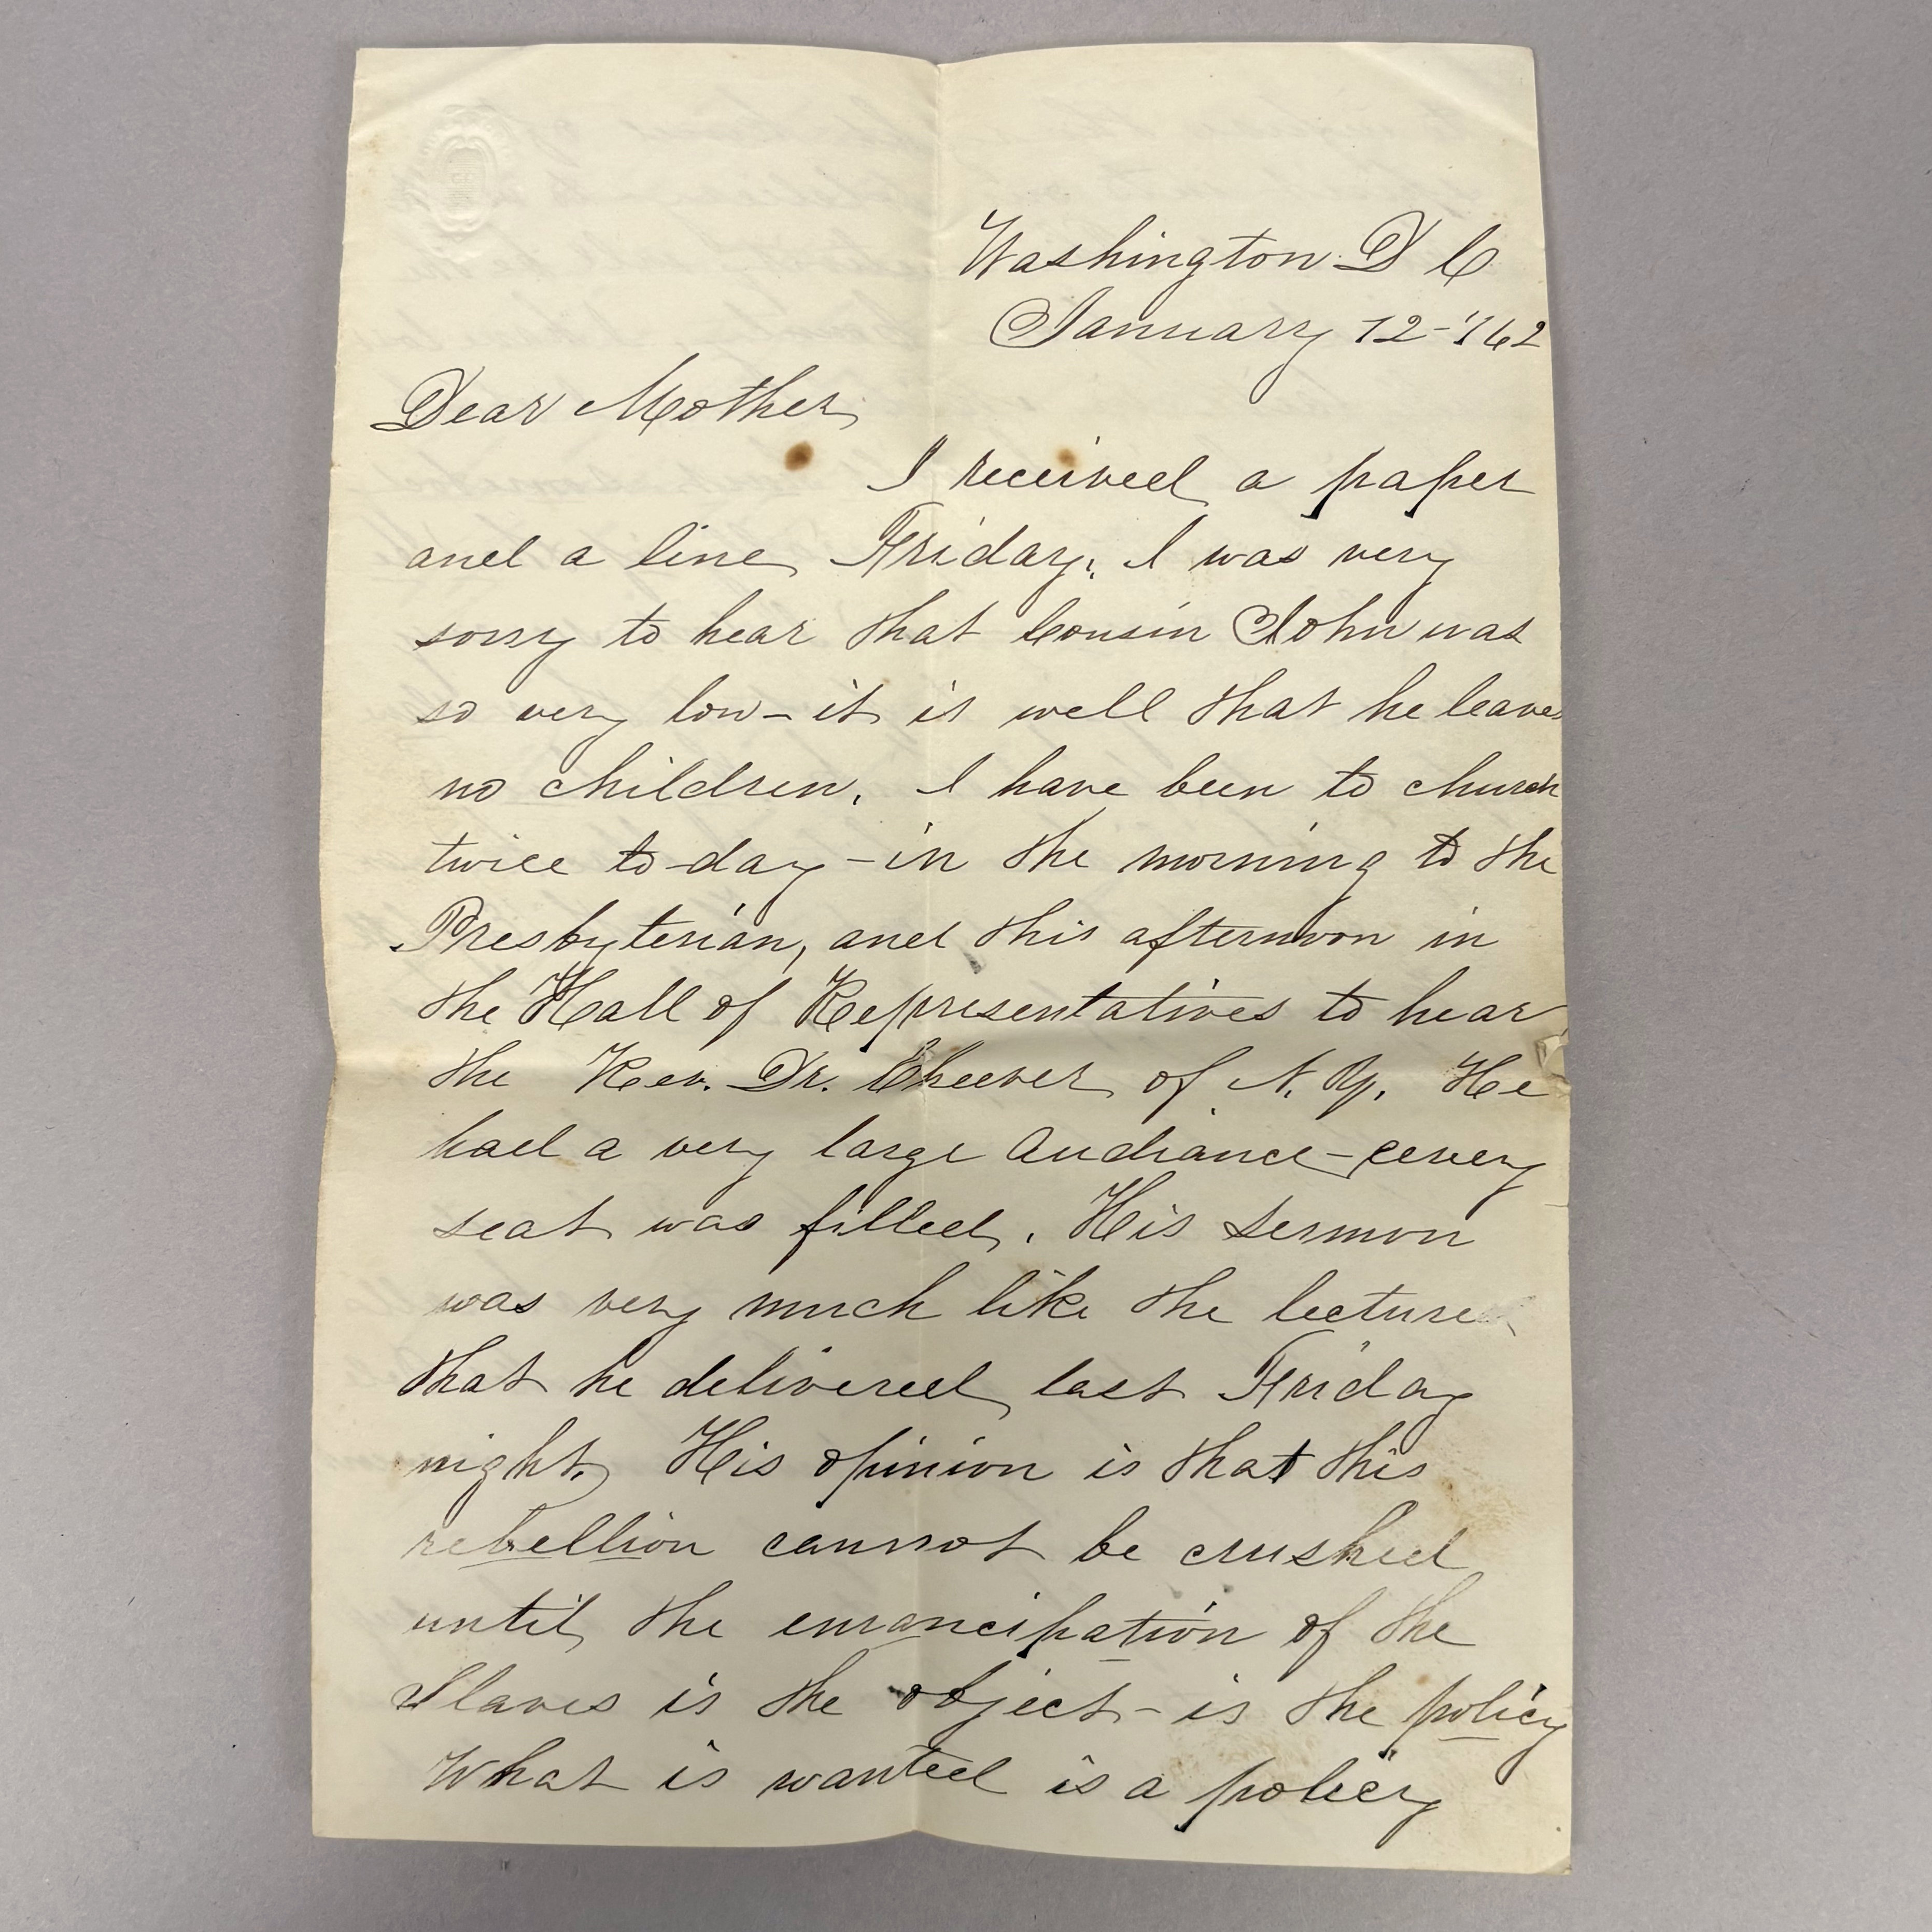 Washington D C
January 12-'62
Dear Mother
I received a paper
and a line Friday. I was very
sorry to hear that Cousin John was
so very low - it is well that he leaves
no children. I have been to church
twice to-day - in the morning to the
Presbyterian, and this afternoon in
the Hall of Representatives to hear
the Rev. Dr. Cheever of N. Y. He
had a very large Audiance - every
seat was filled. His sermon
was very much like the lecture
that he delivered last Friday
night. His opinion is that this
rebellion cannot be crushed
until the emancipation of the
Slaves is the object - is the policy
What is wanted is a policy